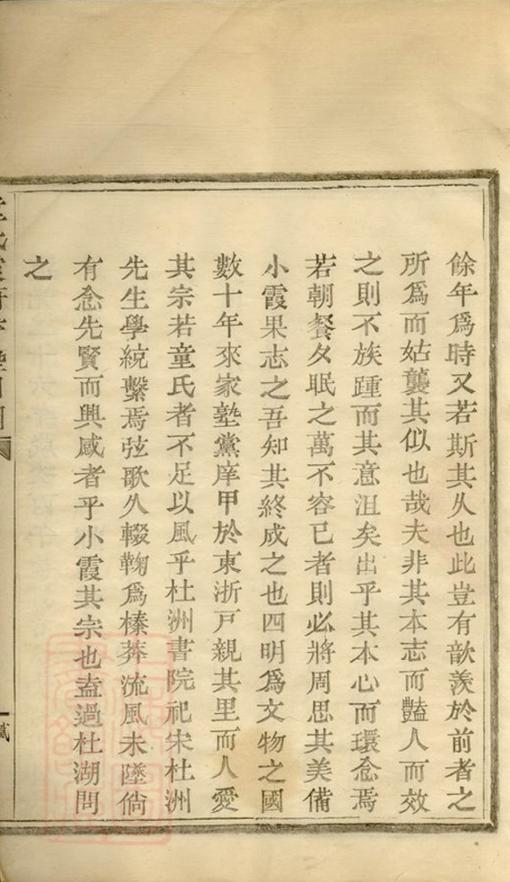 餘年爲時又若斯其久也此豈有歆羨於前者之
所爲而姑襲其似也哉夫非其本志而豔人而效
之則不族踵而其意沮矣出乎其本心而環念焉
若朝餐夕眠之萬不容已者則必將周思其美備
小霞果志之吾知其終成之也四明爲文物之國
數十年來家塾黨庠甲於東浙戸親其里而人愛
其宗若童氏者不足以風乎杜洲書院祀宋杜洲
先生學統繫焉弦歌久輟鞠爲榛莽流風未墜倘
有念先賢而興感者乎小霞其宗也盍過杜湖問
之